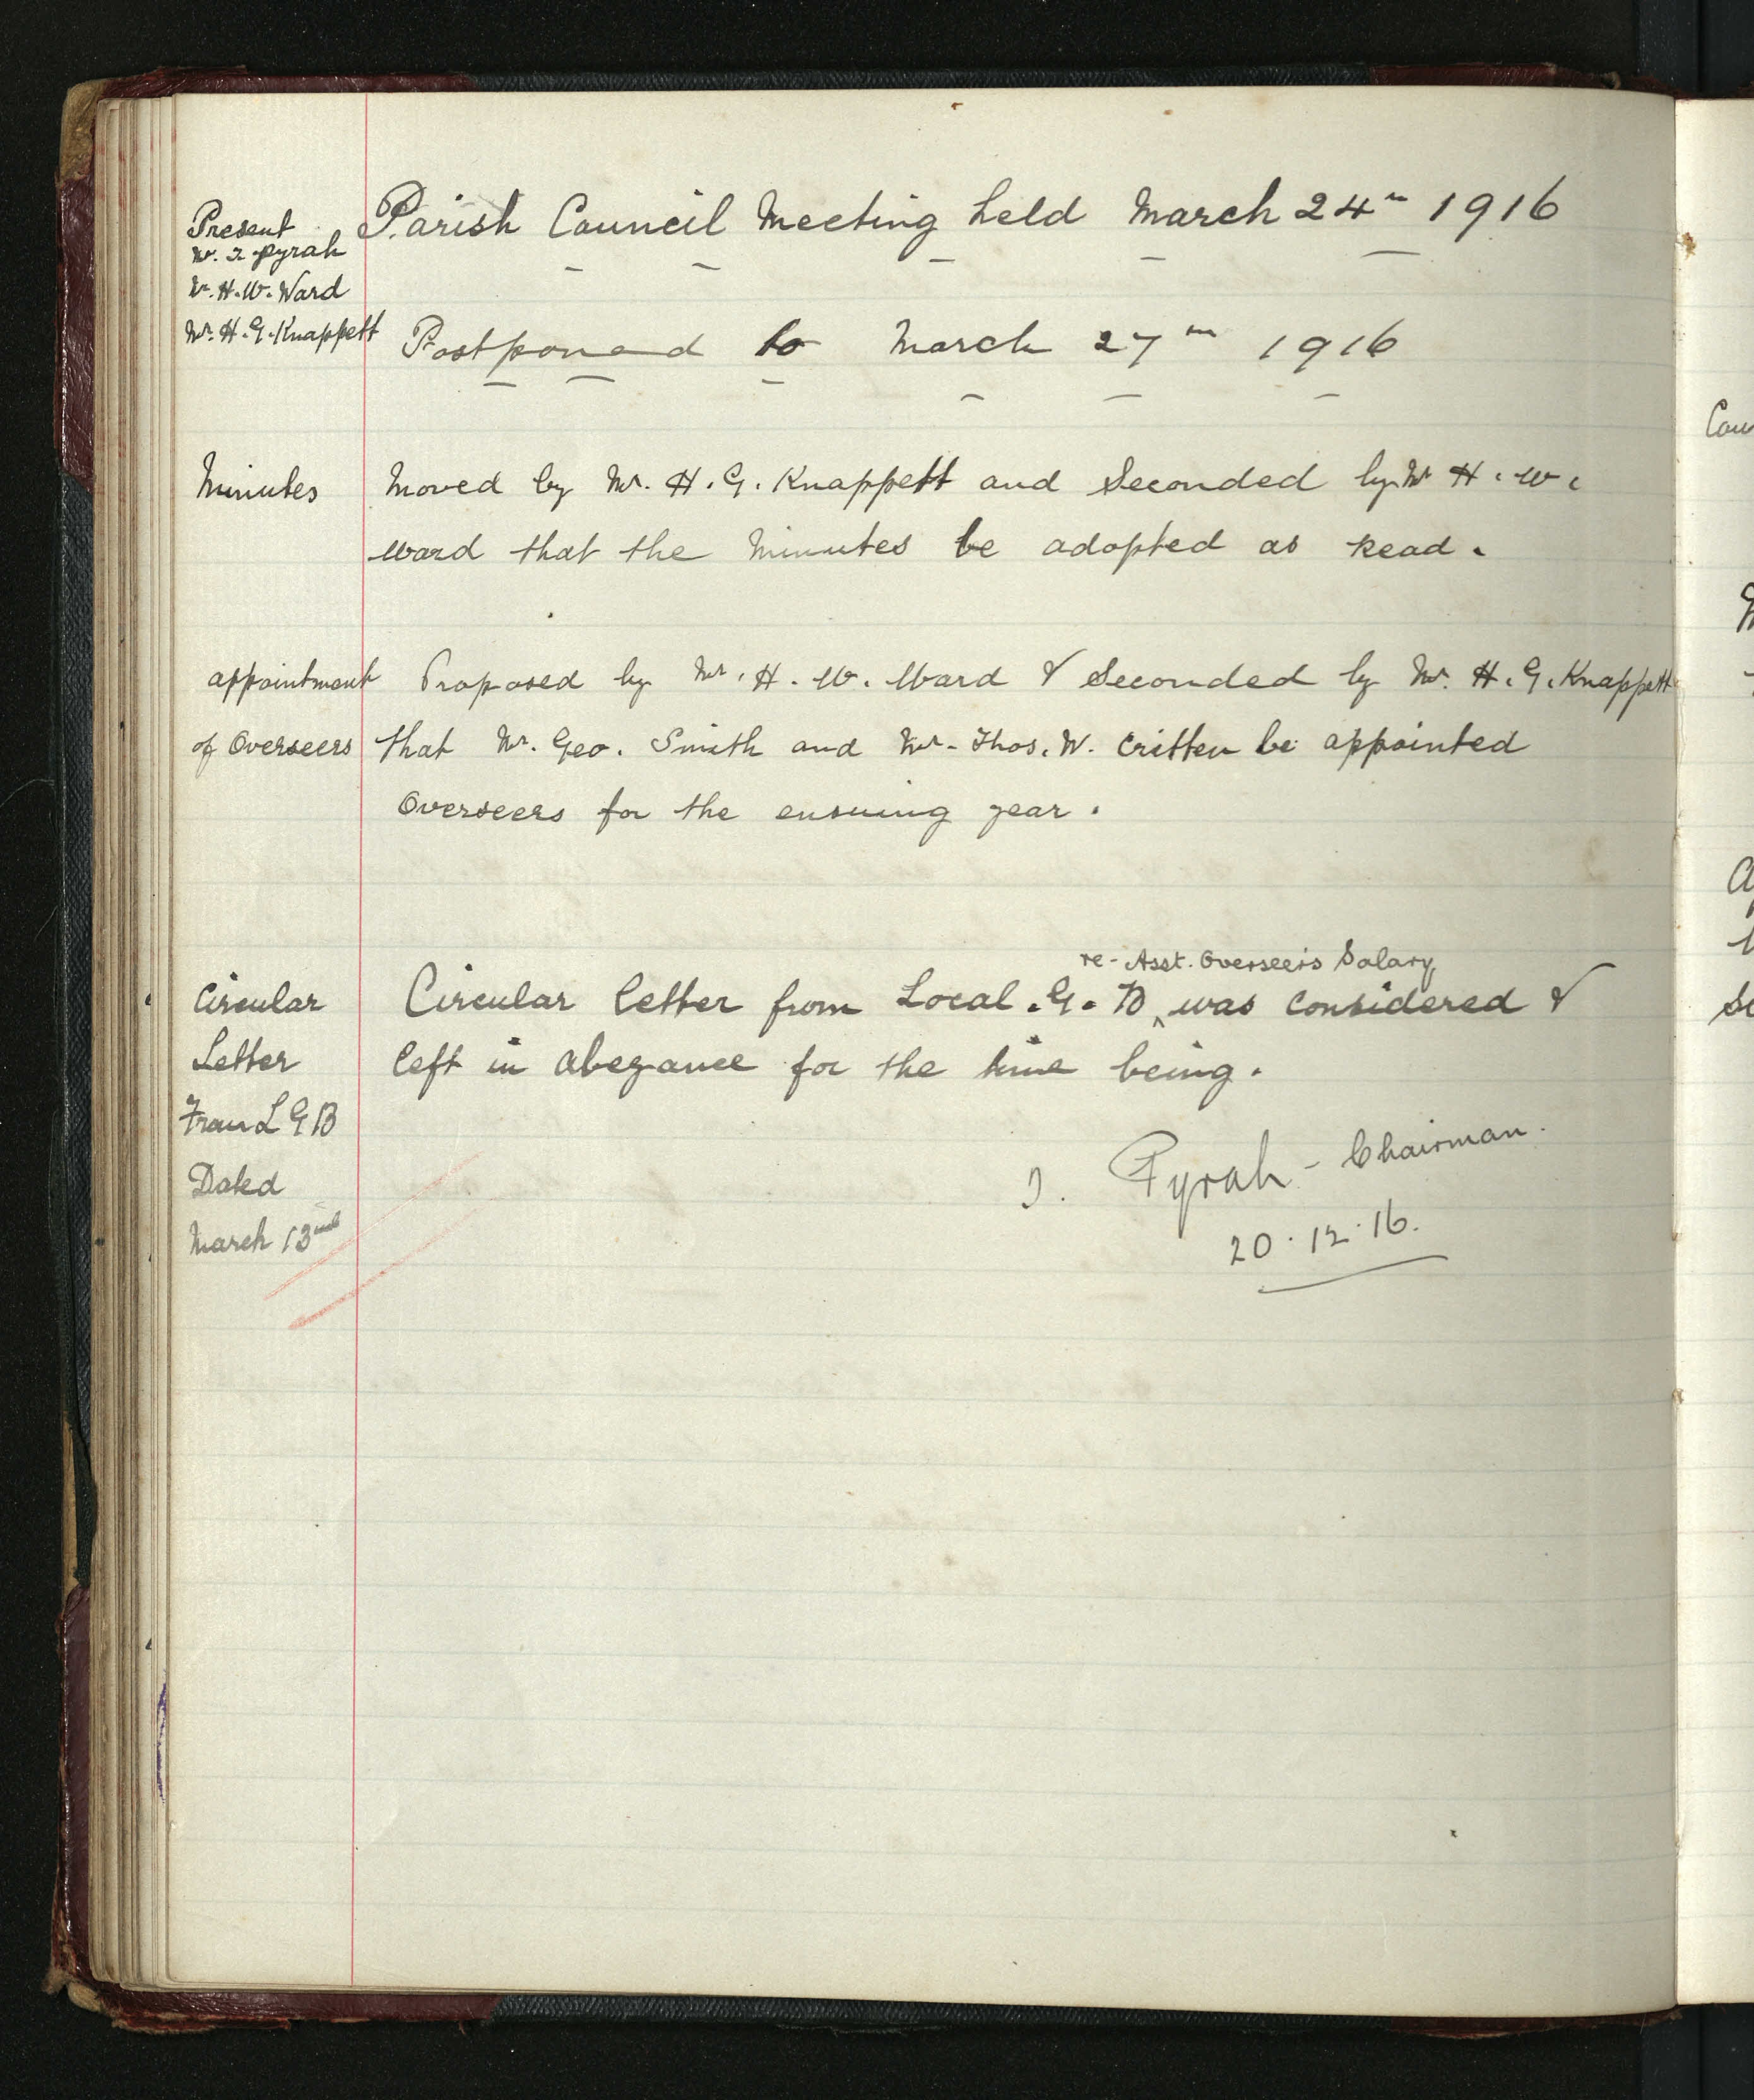 Parish Council Meeting held March 24th 1916
Present
Mr. T. Pyrah
Mr. H. W. Ward
Mr. H. G. Knappett
Postponed to March 27th 1916
Minutes
Moved by Mr. H. G. Knappett and Seconded by Mr H. W.
Ward that the Minutes be adopted as read.
appointment
of Overseers
Proposed by Mr. H. W. Ward & Seconded by Mr. H. G. Knappett
that Mr. Geo. Smith and Mr. Thos. W. Critten be appointed
Overseers for the ensuing year.
Circular
Letter
From L G B
Dated
March 13
re- Asst. Overseers Salary
Circular letter from Local . G. B ^ was considered &
left in abeyance for the time being.
Pyrah - Chairman.
20.12.16.
Cou